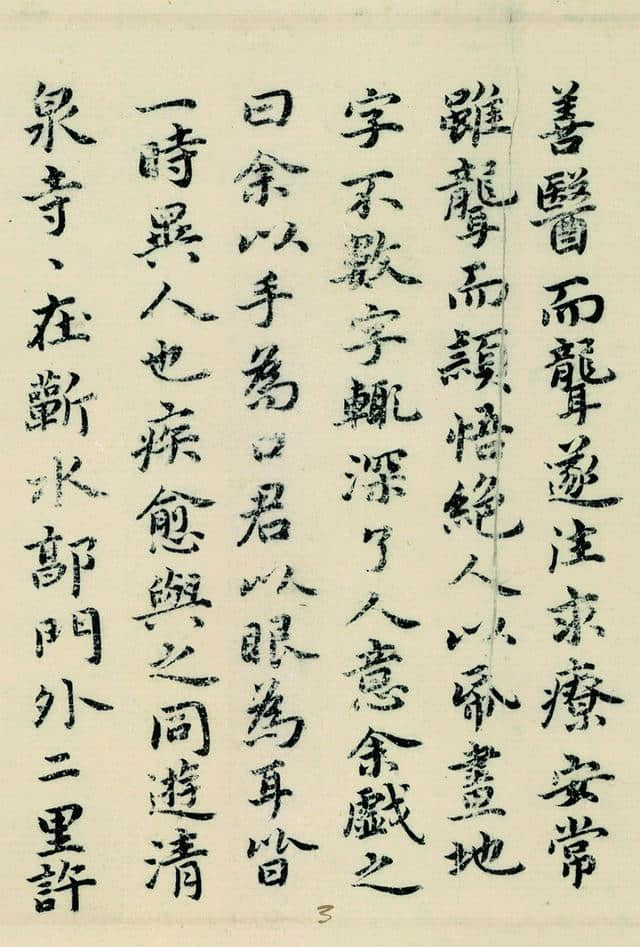 善醫而聾遂往求療安常
雖聾而穎悟絕人以帋畫地
字不數字輙深了人意余戲之
曰余以手為口君以眼為耳皆
一時異人也疾愈與之同遊清
泉寺、在蘄水郭門外二里許
3